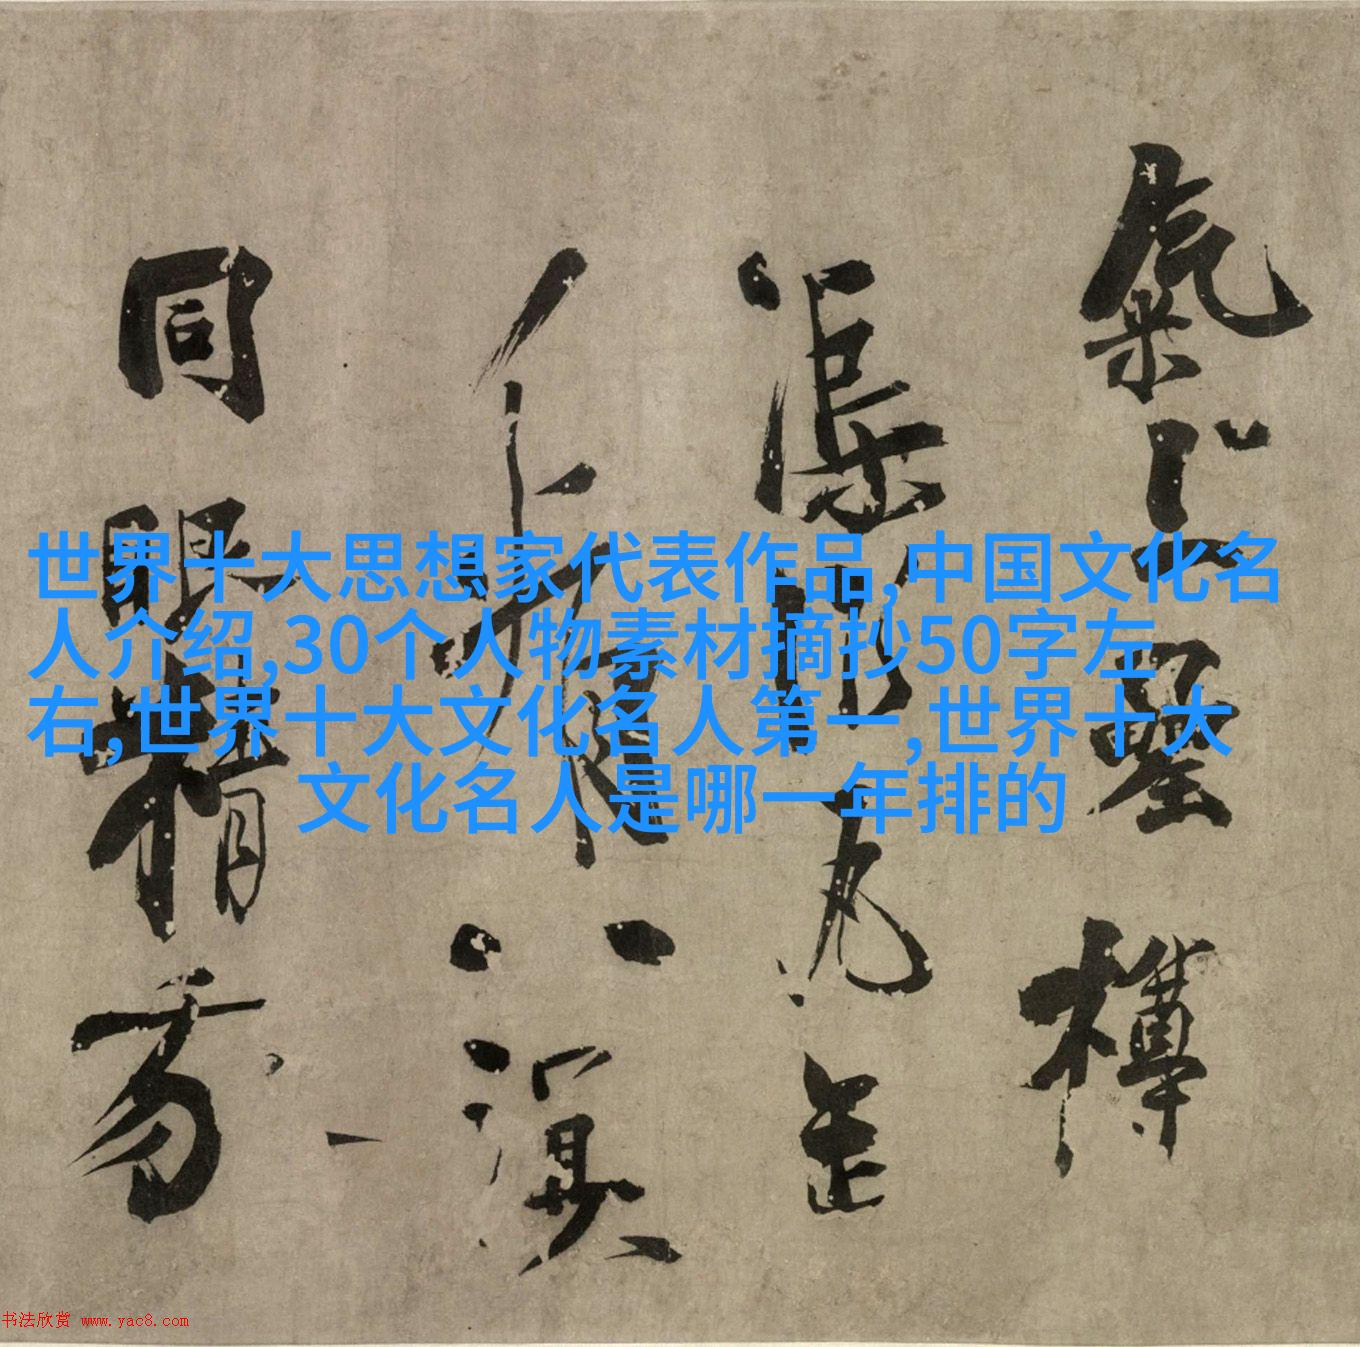 世界十大思想家代表作品,中国文化名
人介绍,30个人物素材摘抄50字左
右,世界十大文化名人第一,世界十大
文化名人是哪一年排的
氣樽
渠
八溟
同眼精
书法欣赏 www.yac8.com